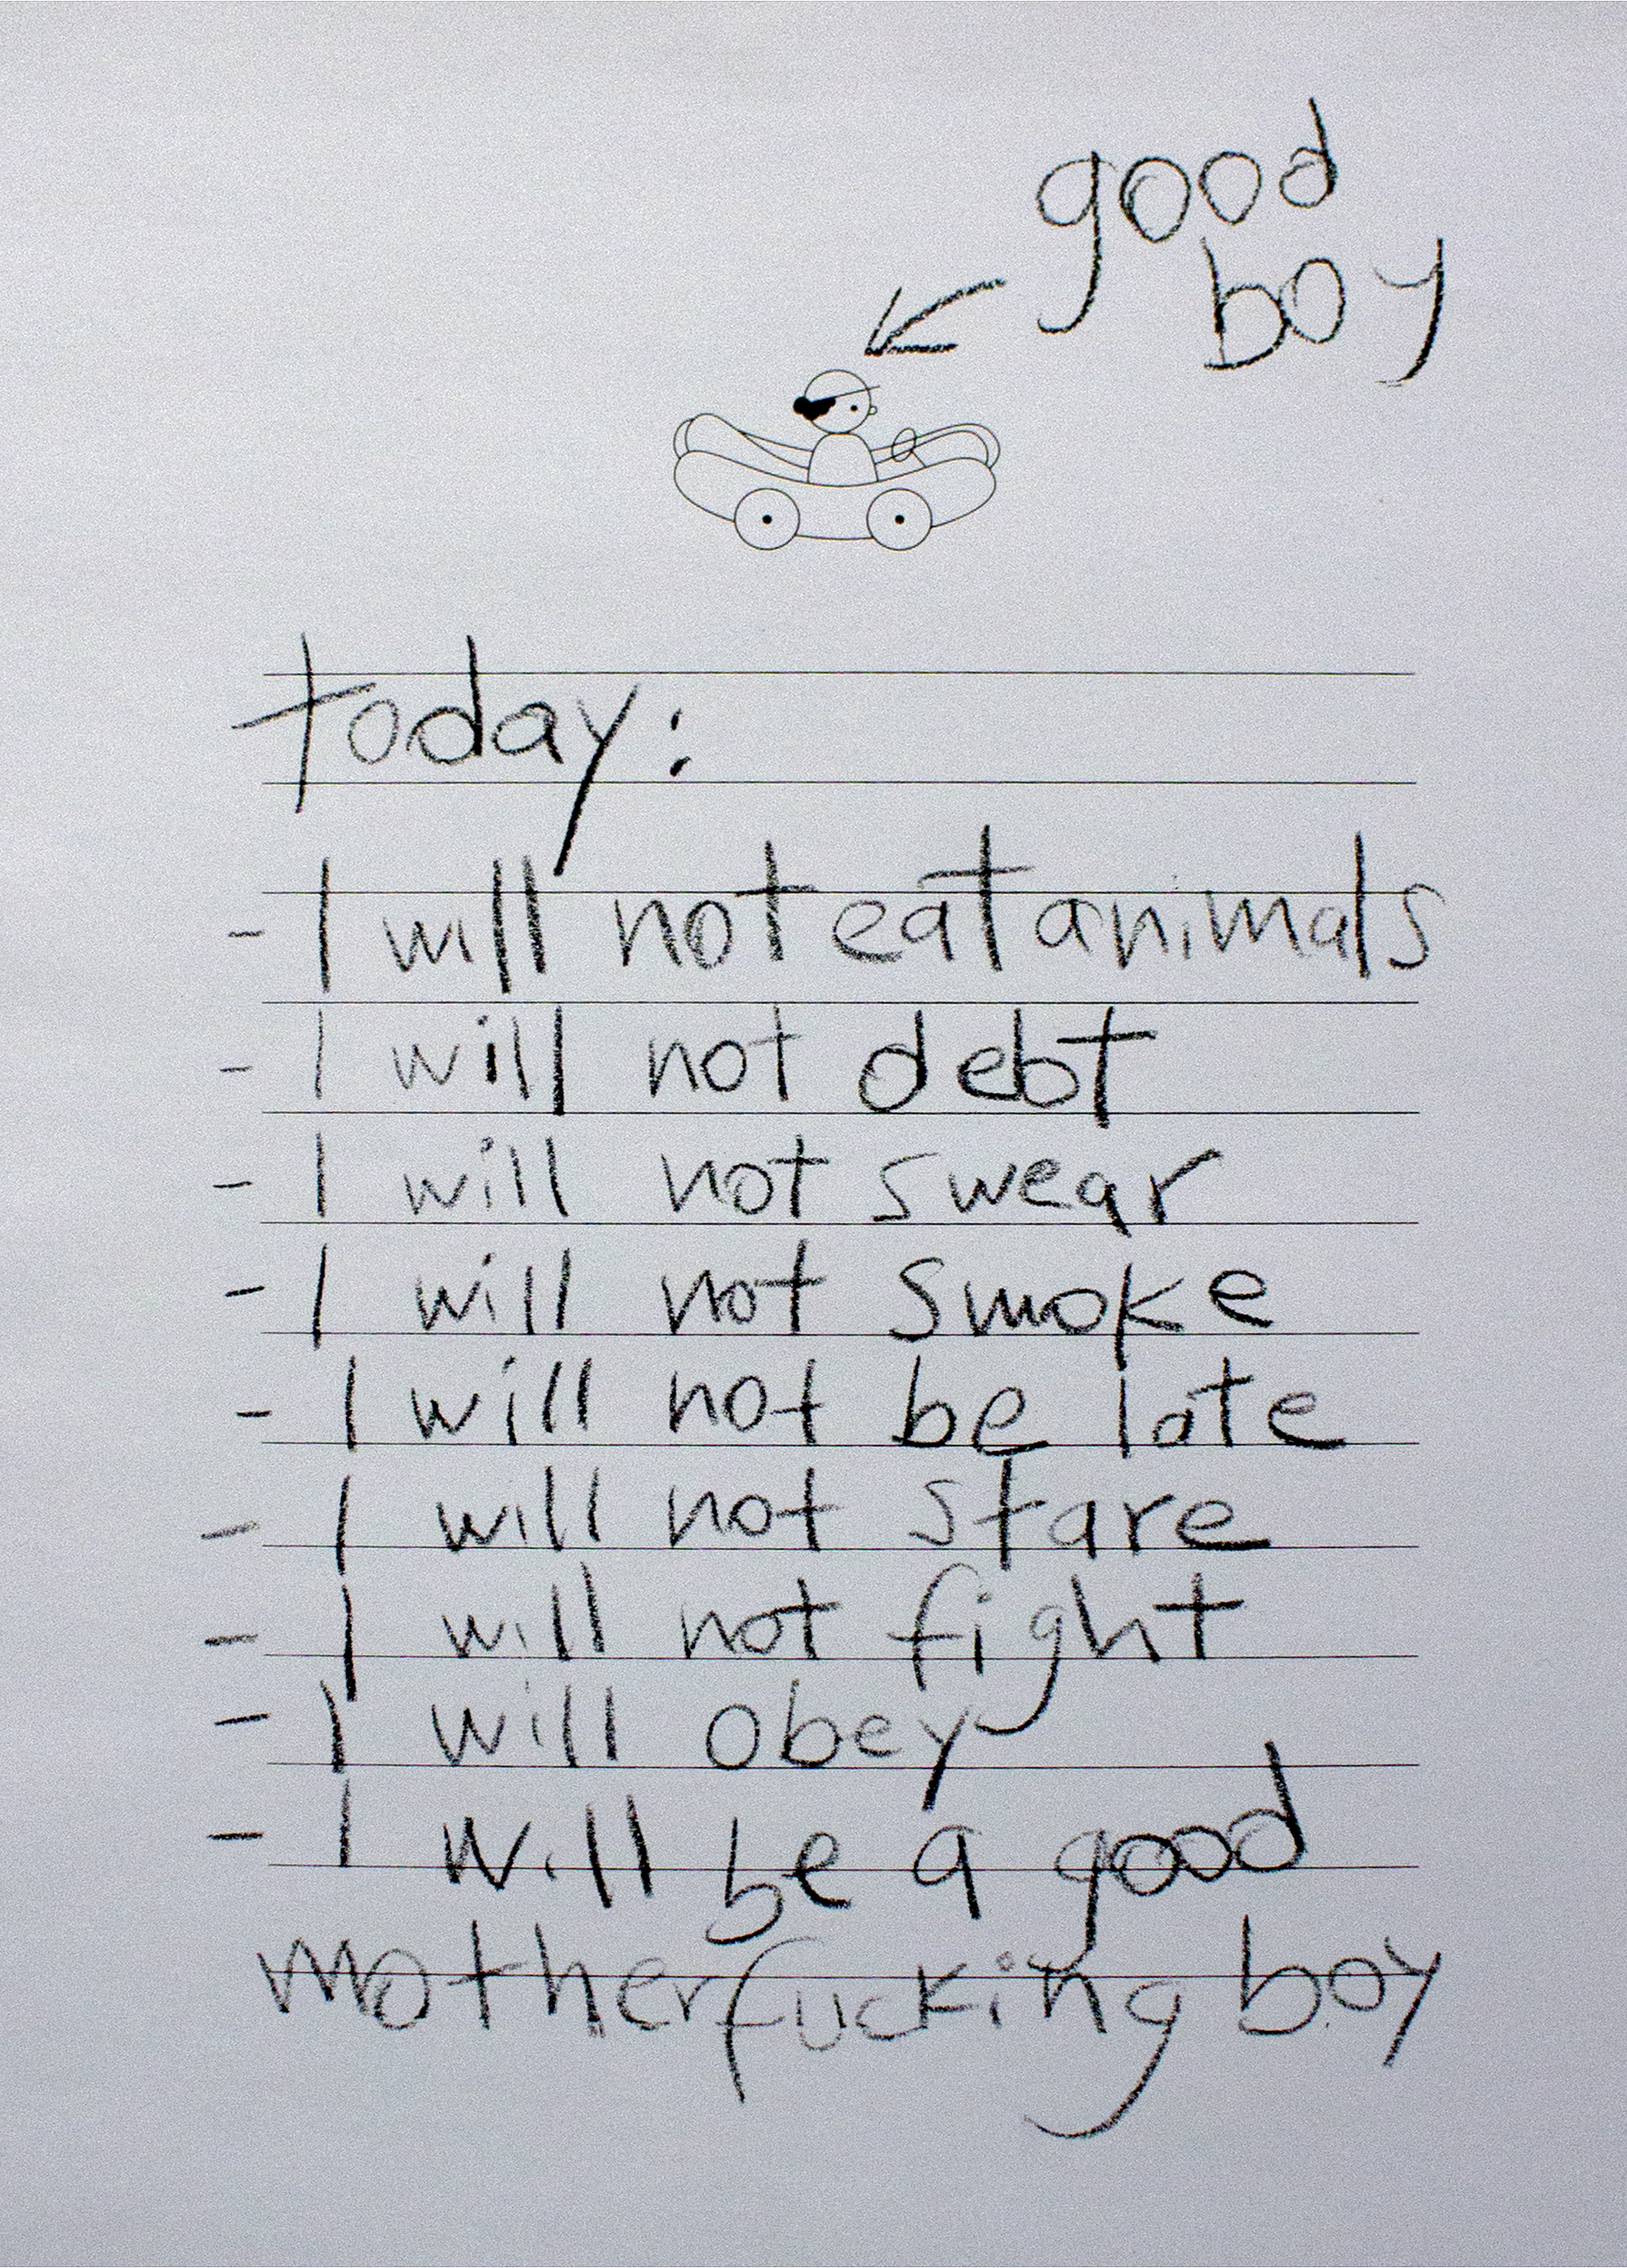 good
boy
today:
- I will not eat animals
- I will not debt
- I will not swear
- I will not smoke
- I will not be late
- I will not stare
- I will not fight
- I will obey
- I will be a good
motherfucking boy